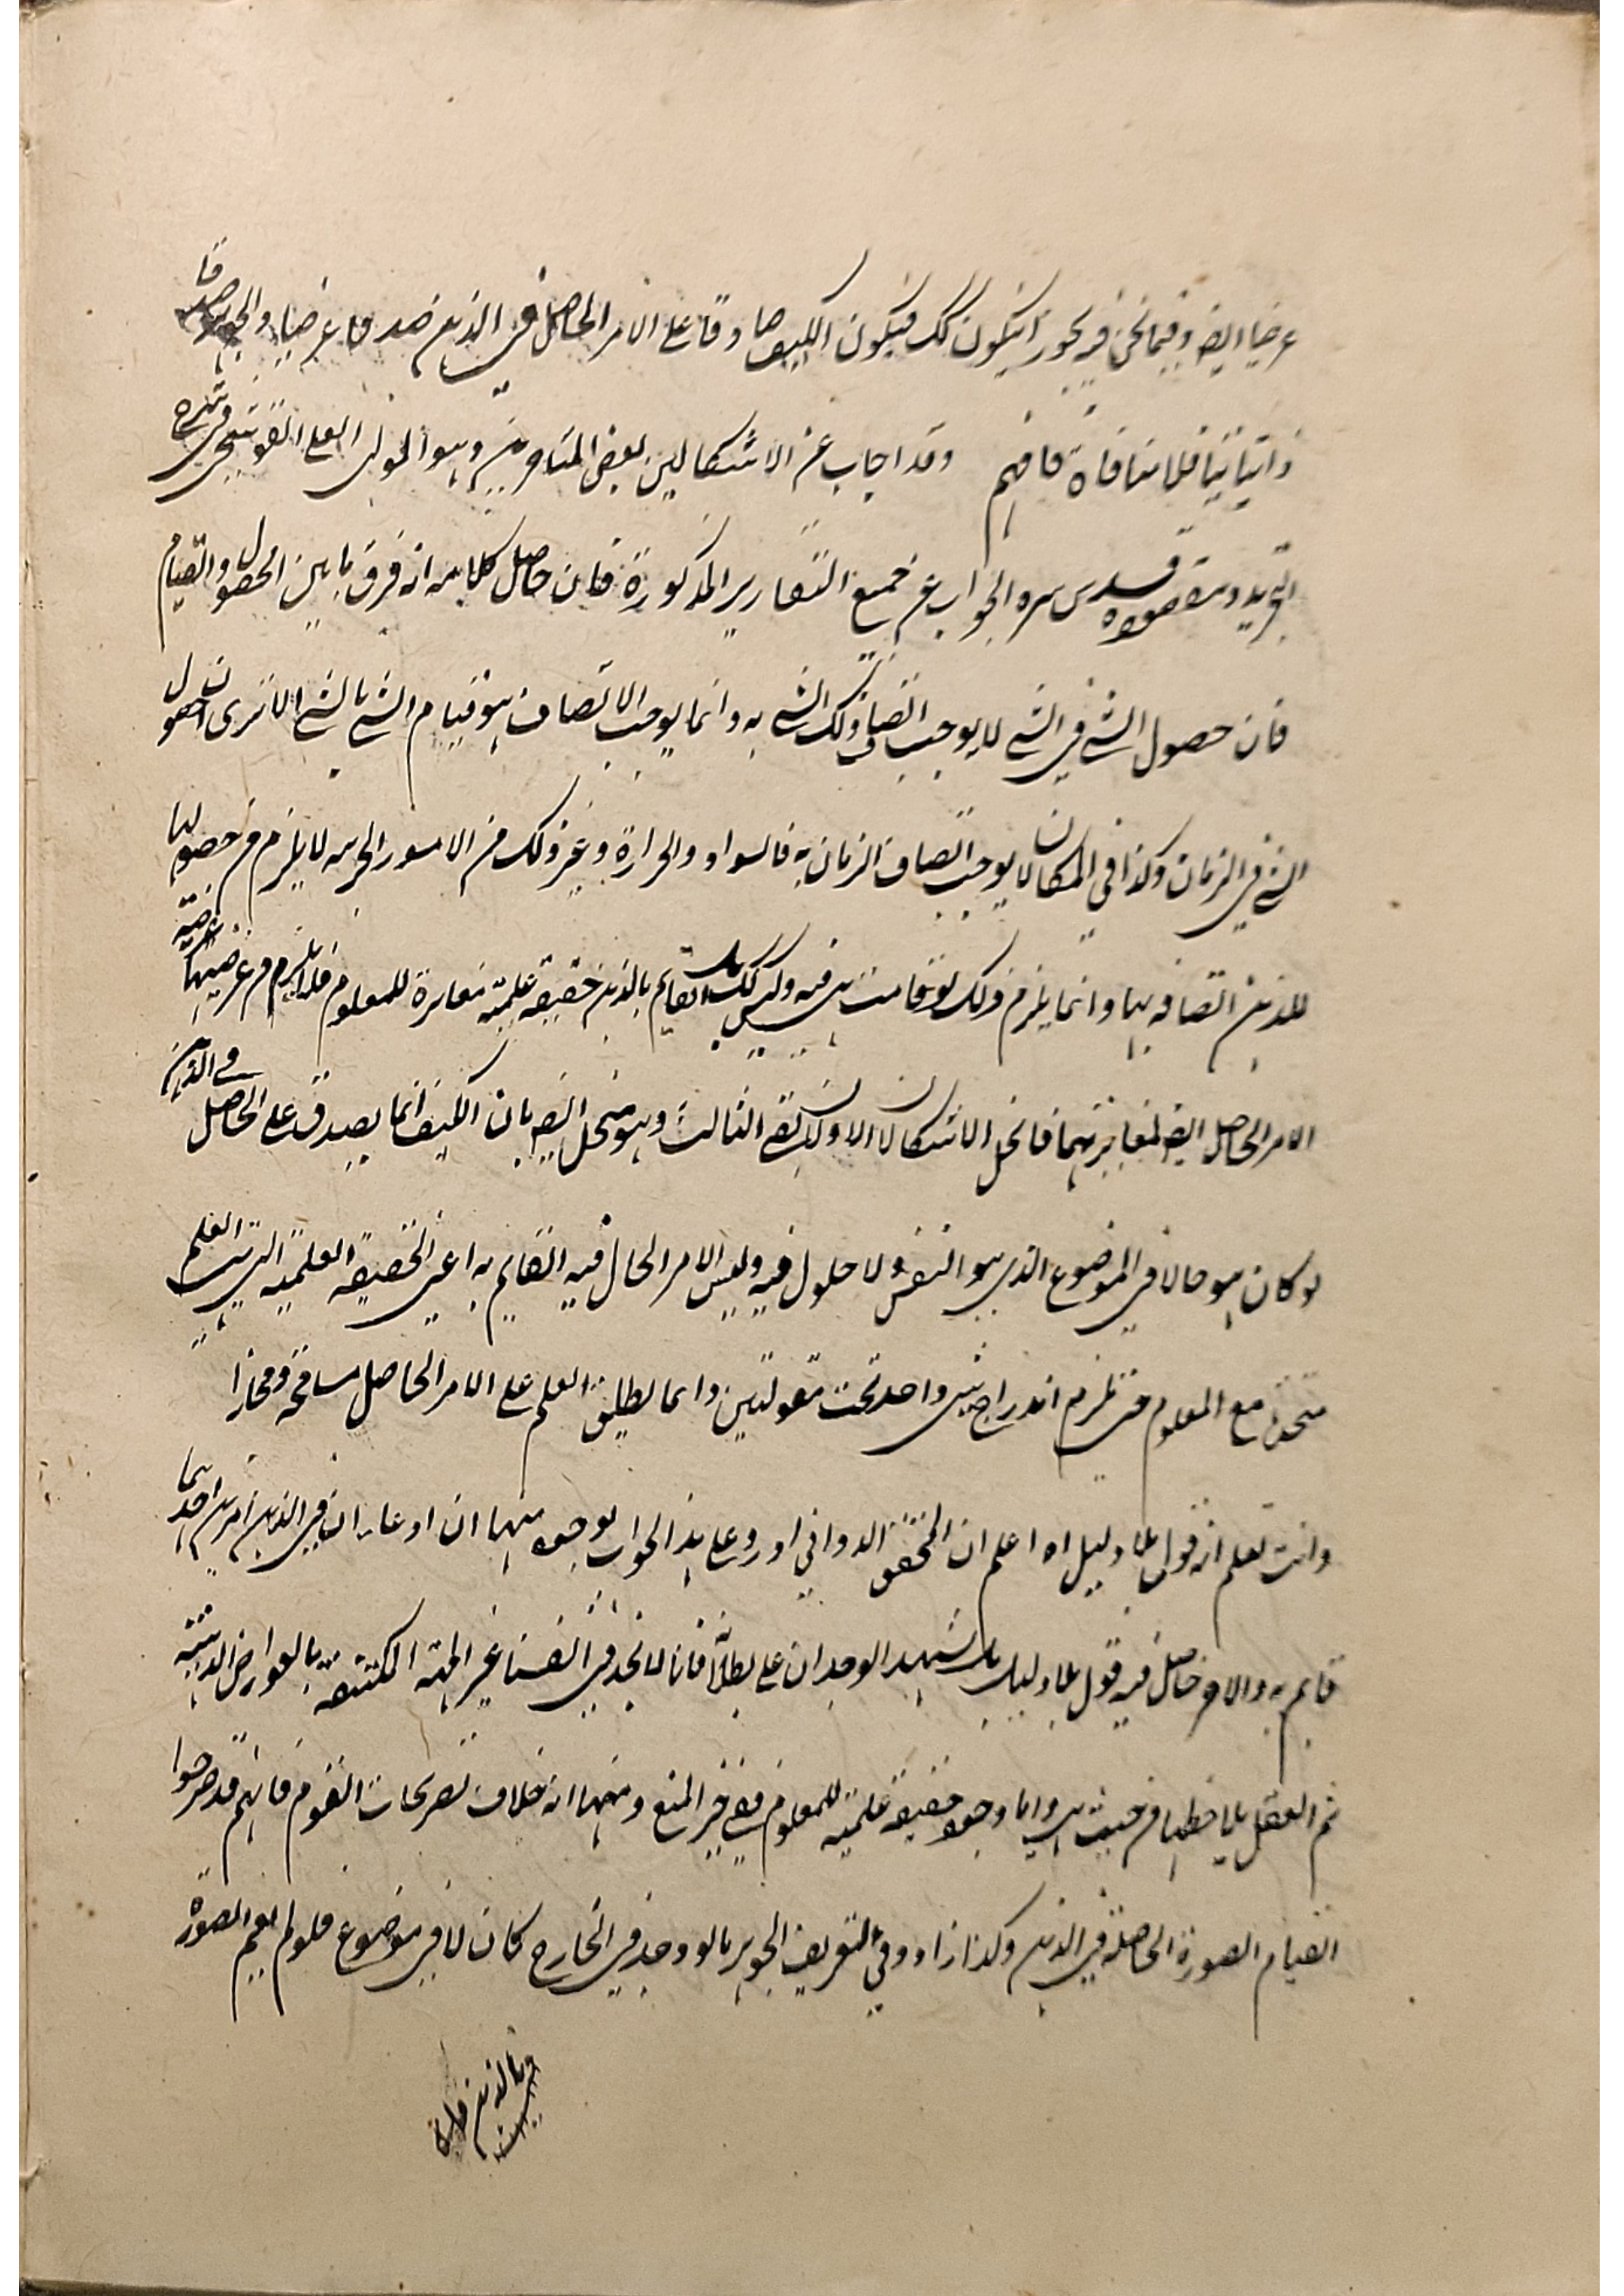 عرضيا ايضا وفيما نحن فيه يجوز ان يكون كك فيكون الكيف صادقا على الامر الحاصل في الذهن صدقا عرضيا والجوهر صدقا
ذاتيا فلا منافاة فافهم وقد اجاب عن الاشكالين بعض المتاخرين وهو المولى العلى القوشجى فى شرح
التجريد ومقصوده قدس سره الجواب عن جميع التقارير المذكورة فان حاصل كلامه انه فرق ما بين الحصول والقيام
فان حصول الشئ فى الشئ لا يوجب اتصاف ذلك الشئ به وانما يوجب الاتصاف هو قيام الشئ بالشئ الا ترى ان حصول
الشئ فى الزمان وكذا فى المكان لا يوجب اتصاف الزمان به فالسواد والحرارة وغير ذلك من الامور الخارجية لا يلزم من حصولها
للذهن اتصافه بها وانما يلزم ذلك لو قامت هى فيه وليس كك بل القايم بالذهن حقيقة علمية مغايرة للمعلوم فلا يلزم من عرضيتها عرضية
الامر الحاصل ايضا لمغايرتهما فانحل الاشكالان الاولان بقى الثالث وهو منحل ايضا بان الكيف انما يصدق على الحاصل فى الذهن
لو كان هو حالا فى الموضوع الذى هو النفس ولا حلول فيه وليس الامر الحال فيه القايم به اعنى الحقيقة العلمية التى هى العلم
متحد مع المعلوم حتى يلزم اندراج شئ واحد تحت مقولتين وانما يطلق العلم على الامر الحاصل مسامحة ومجازا
وانت تعلم انه قول بلا دليل اه اعلم ان المحقق الدوانى اورد على هذا الجواب بوجوه منها ان ادعاء ان فى الذهن امرين احدهما
قايم به والاخر حاصل فيه قول بلا دليل بل شهد الوجدان على بطلانه فانا لا نجد فى انفسنا غير المهية المكتنفة بالعوارض الذهنية
ثم العقل يلاحظها من حيث هى واما وجود حقيقة علمية للمعلوم ففى حيز المنع ومنها انه خلاف تصريحات القوم فانهم قد صرحوا
القيام الصورة الحاصلة فى الذهن وكذا زادوا فى التعريف الجوهر ما لو وجد فى الخارج كان لا فى موضوع فلو لم يقم الصورة
بالذهن